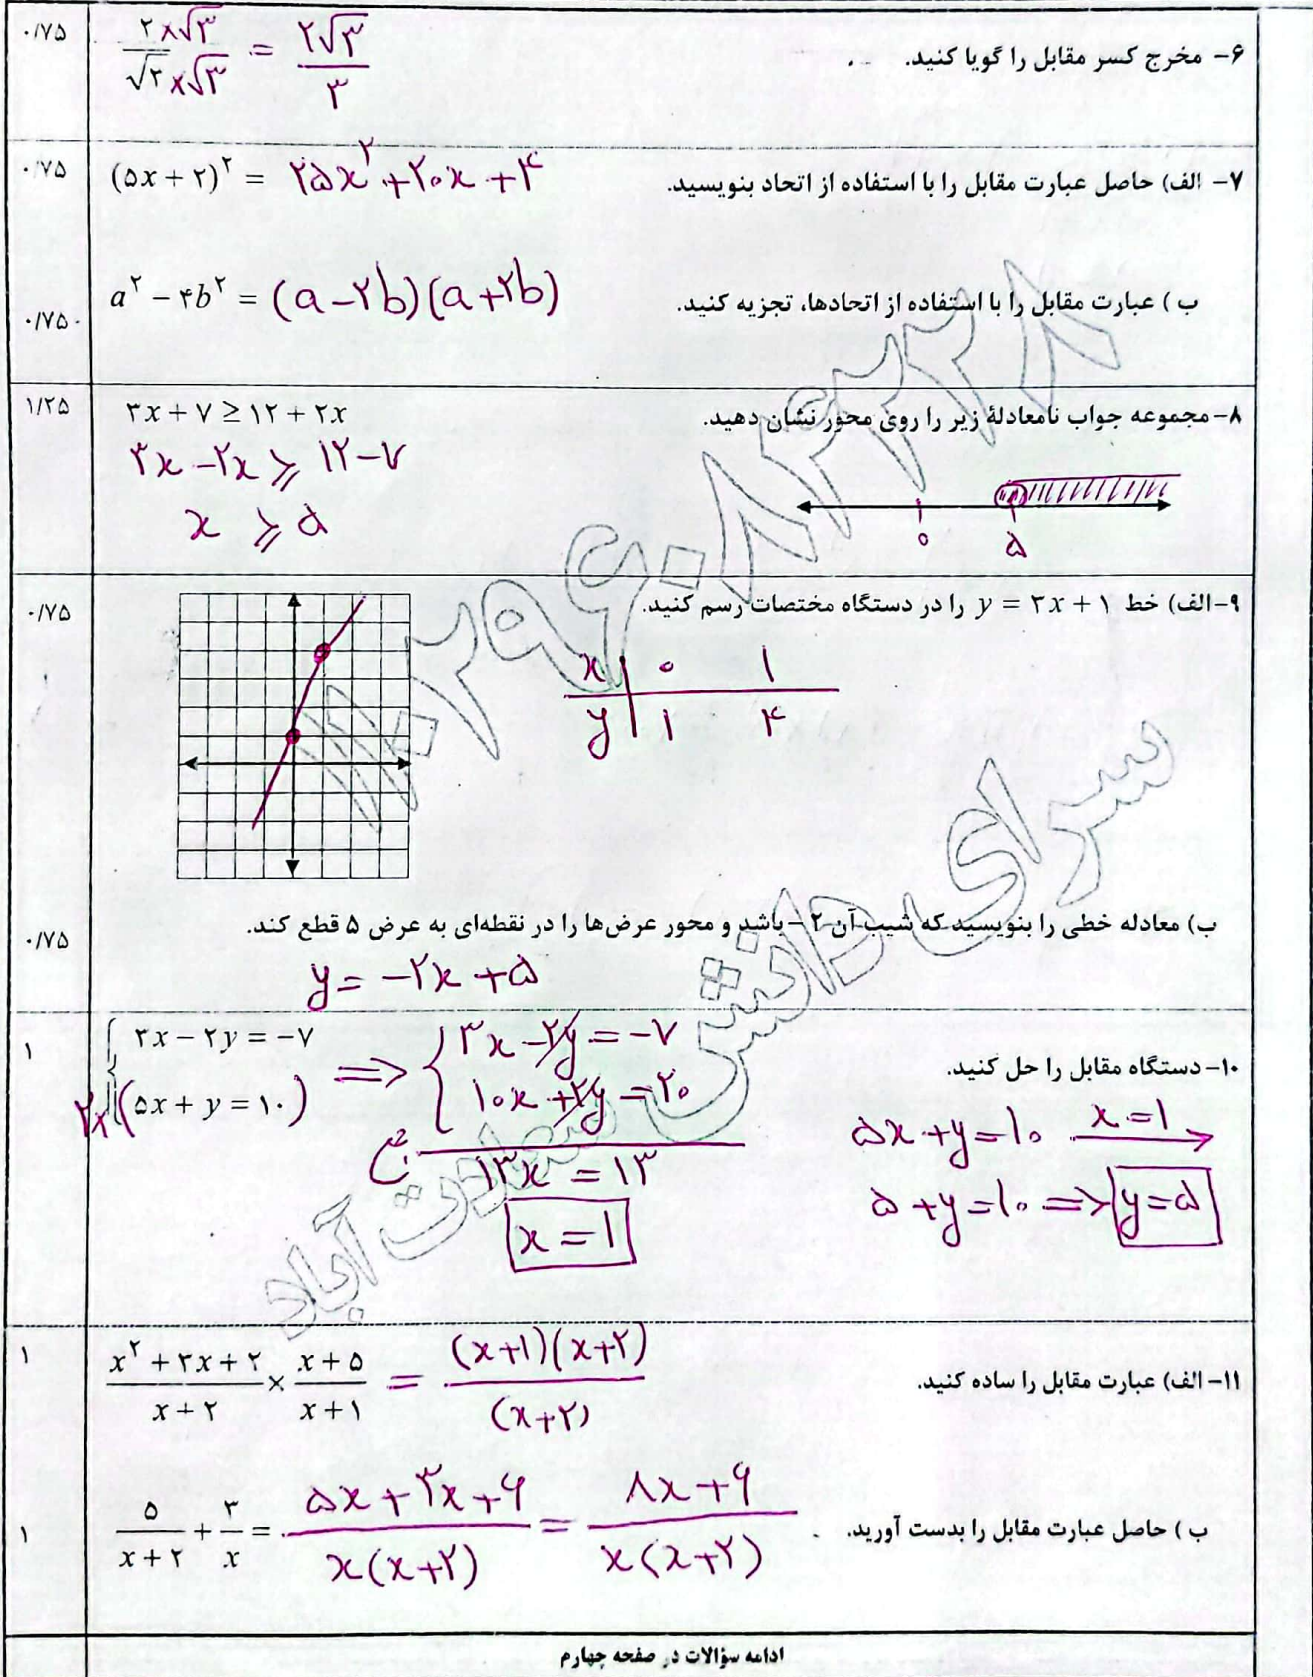 ۰/۷۵
۶- مخرج کسر مقابل را گویا کنید.
۲×√۳ / √۲×√۳ = ۲√۳ / ۳
۰/۷۵
۷- الف) حاصل عبارت مقابل را با استفاده از اتحاد بنویسید.
(۵x + ۲)^۲ = ۲۵x^۲ + ۲۰x + ۴
ب ) عبارت مقابل را با استفاده از اتحادها، تجزیه کنید.
a^۲ − ۴b^۲ = (a − ۲b)(a + ۲b)
۰/۷۵
۱/۲۵
۸- مجموعه جواب نامعادلهٔ زیر را روی محور نشان دهید.
۳x + ۷ ≥ ۱۲ + ۲x
۳x − ۲x ≥ ۱۲ − ۷
x ≥ ۵
۰ ۵
۰/۷۵
۹-الف) خط y = ۳x + ۱ را در دستگاه مختصات رسم کنید.
x | ۰ ۱
y | ۱ ۴
۰/۷۵
ب) معادله خطی را بنویسید که شیب آن ۲− باشد و محور عرض‌ها را در نقطه‌ای به عرض ۵ قطع کند.
y = −۲x + ۵
۱
۱۰- دستگاه مقابل را حل کنید.
۳x − ۲y = −۷ ⟹ ۳x − ۲y = −۷
۲× (۵x + y = ۱۰) ۱۰x + ۲y = ۲۰
۱۳x = ۱۳
x = ۱
۵x + y = ۱۰ x = ۱ →
۵ + y = ۱۰ ⟹ y = ۵
۱
۱۱- الف) عبارت مقابل را ساده کنید.
x^۲ + ۳x + ۲ / x + ۲ × x + ۵ / x + ۱ = (x+۱)(x+۲) / (x+۲)
۱
ب ) حاصل عبارت مقابل را بدست آورید.
۵ / x + ۲ + ۳ / x = ۵x + ۳x + ۶ / x(x+۲) = ۸x + ۶ / x(x+۲)
ادامه سؤالات در صفحه چهارم
سرای دانش سعادت آباد